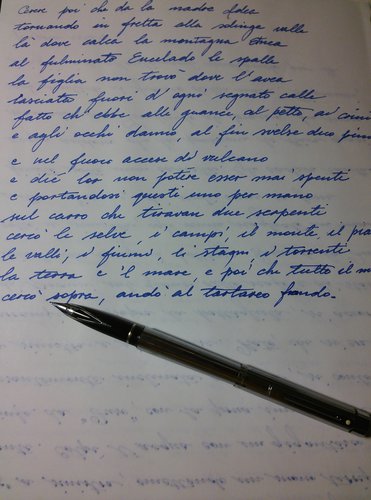 Cerere poi chi da la madre Idea
tornando in fretta alla solinga valle
là dove calca la montagna Etnea
al fulminato Encelado le spalle
la figlia non trovò dove l'avea
lasciata fuori d'ogni segnato calle
fatto ch'ebbe alle guance, al petto, ai crini
e agli occhi danno, al fin svelse duo pini
e nel fuoco accese di vulcano
e diè lor non potere esser mai spenti
e portandosi questi uno per mano
sul carro che tiravan due serpenti
cercò le selve, i campi, il monte il pia
le valli, i fiumi, li stagni, i torrenti
la terra e 'l mare, e poi che tutto il m
cercò sopra, andò al tartareo fondo.